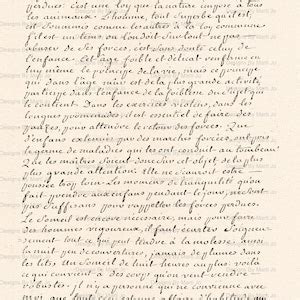 perdues. C'est une loy que la nature impose à tous
les animaux. L'homme, tout superbe qu'il est,
est soumis comme les autres à la loy commune
s'il est un tems ou l'on doit surtout ne pas
abuser de ses forces, c'est sans doute celuy de
l'enfance. Cet âge foible et délicat renferme en
luy même le principe de la vie, mais ce principe
qui dans l'âge mur est de la plus grande activité,
participe dans l'enfance de la foiblesse du sujet qui
le contient. Dans les exercices violens, dans les
longues promenades, il est essentiel de faire des
pauses, pour attendre le retour des forces. Que
d'enfans exténués par des marches forcées, ont pris
le germe de maladies qui les ont conduit au tombeau!
Que les maîtres soient donc sur cet objet, de la plus
plus grande attention. Elle ne sçauroit être
poussée trop loin. Les momens de tranquilité qu'on
fait prendre aux enfans pendant le jour, ne sont
pas suffisans pour rappeller les forces perdues.
Le sommeil est encore nécessaire, mais pour faire
des hommes vigoureux, il faut écarter soigneu-
sement tout ce qui peut tendre à la molesse: aussi
la nuit peu de couvertures, jamais de plumes dans
les lits. Un sommeil de huit heures au plus voilà
ce qui convient à des corps qu'on veut rendre
robustes. Il n'y a personne qui ne convienne avec
moi, que tout